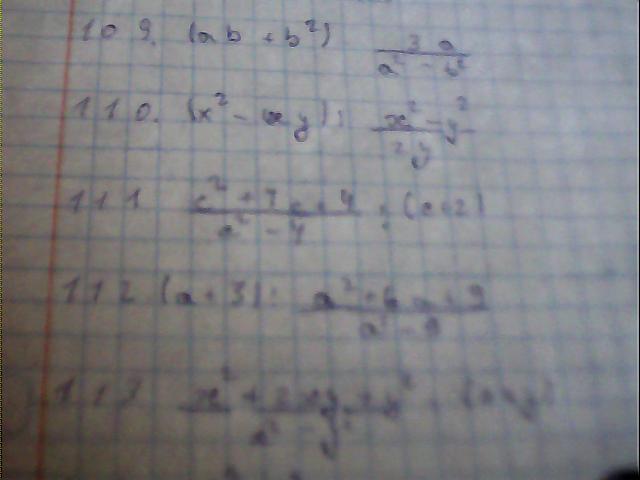 109. (ab + b²) 3a / a² - b²
110. (x² - xy) : x² - y² / 2y
111 c² + 7c + 4 / c² - 4 : (c+2)
112 (a + 3) : a² + 6a + 9 / a² - 9
113 x² + 2xy + y² / x² - y²